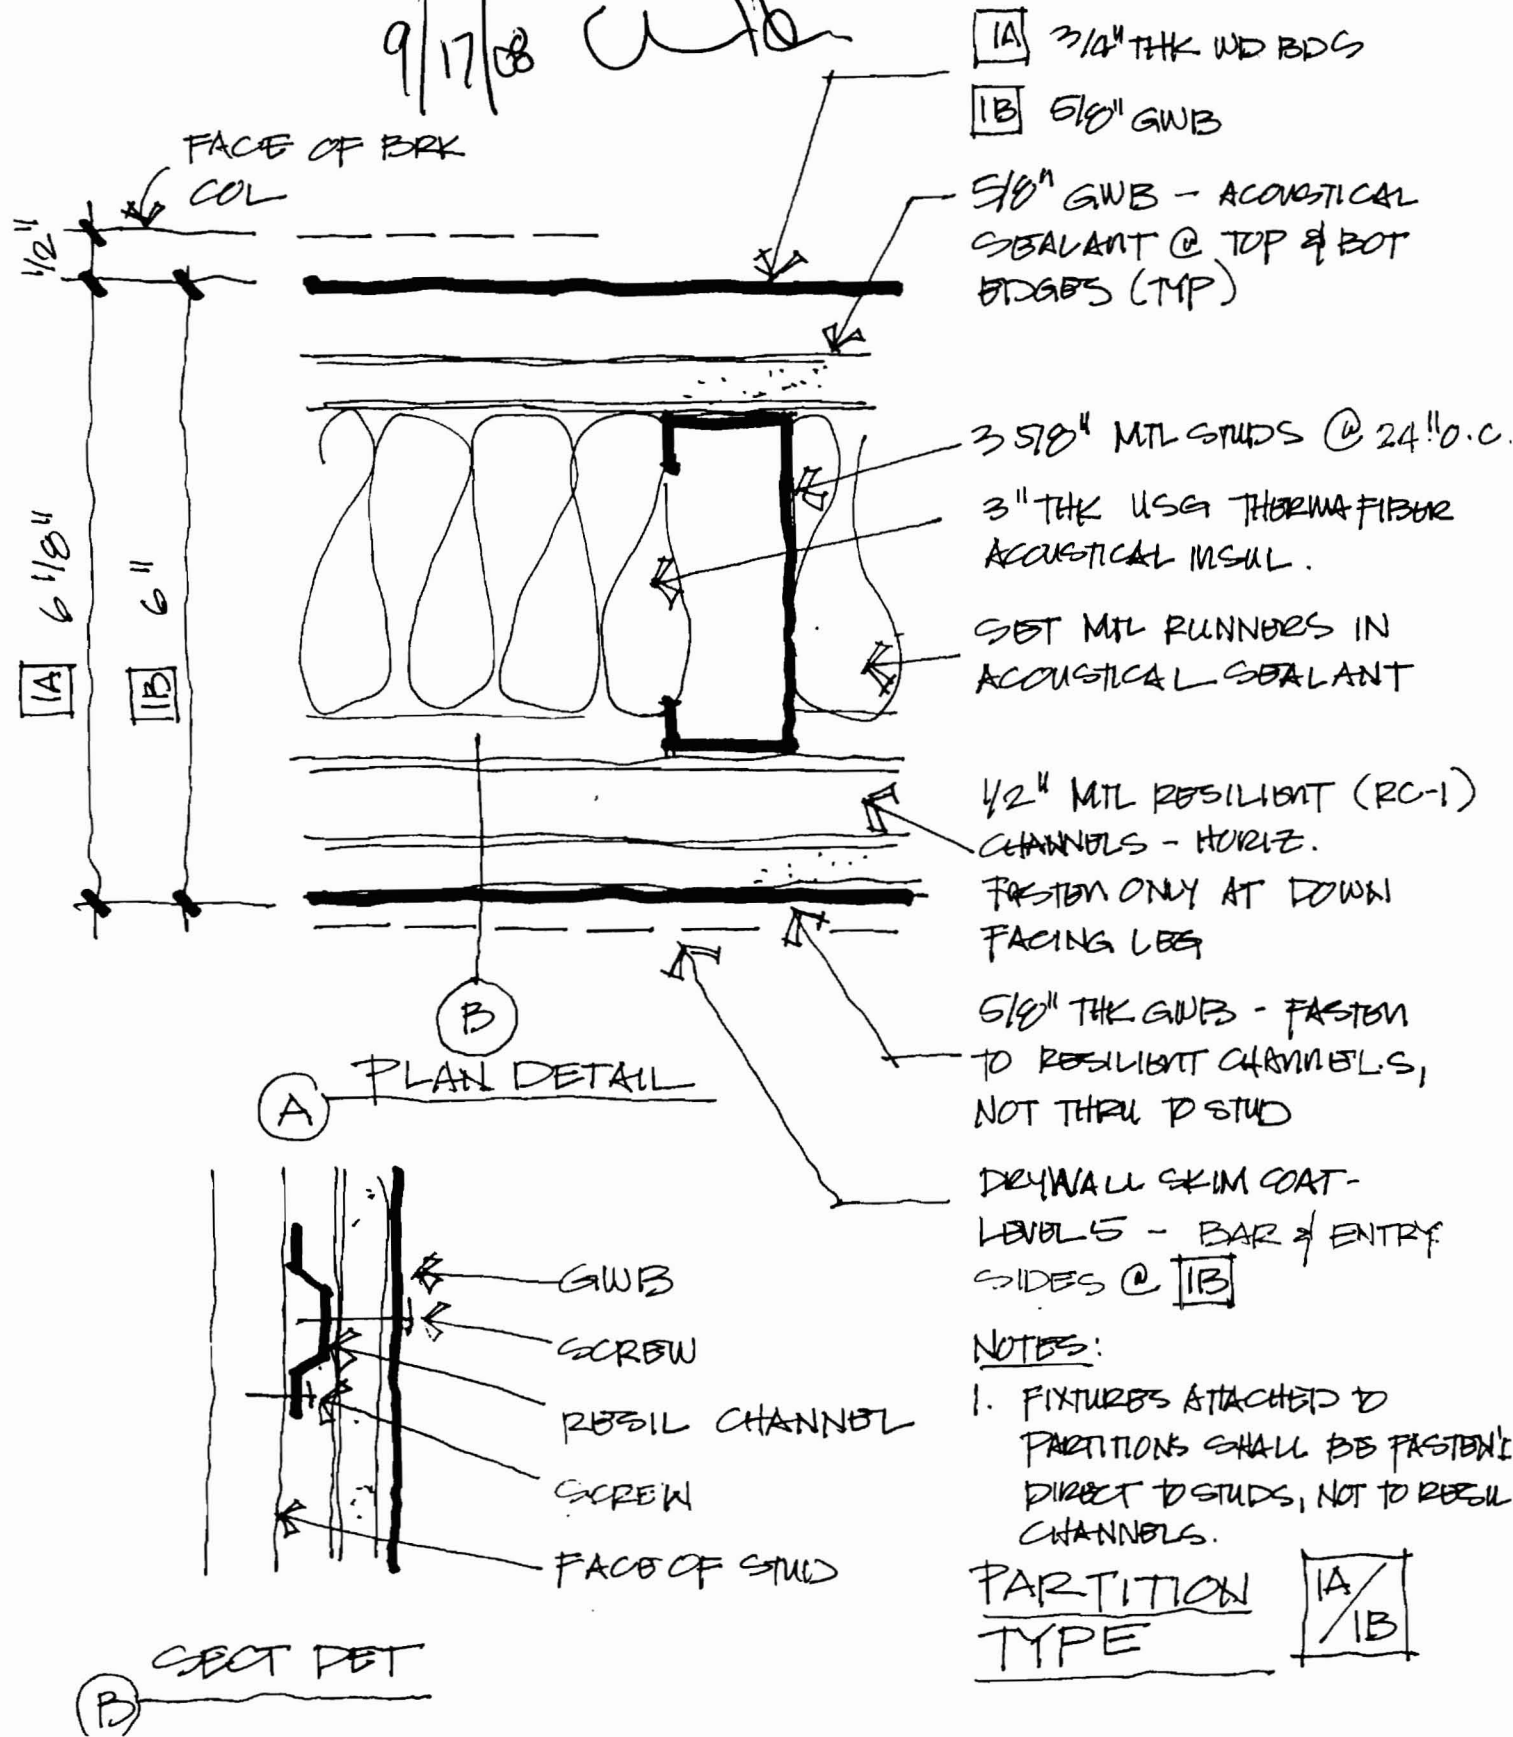 9/17/08
1A 3/4" THK WD BDS
1B 5/8" GWB
FACE OF BRK
COL
5/8" GWB - ACOUSTICAL
SEALANT @ TOP & BOT
EDGES (TYP)
1/2"
3 5/8" MTL STUDS @ 24" O.C.
3" THK USG THERMAFIBER
ACOUSTICAL INSUL.
SET MTL RUNNERS IN
ACOUSTICAL SEALANT
1A 6 1/8"
1B 6"
1/2" MTL RESILIENT (RC-1)
CHANNELS - HORIZ.
FASTEN ONLY AT DOWN
FACING LEG
5/8" THK GWB - FASTEN
TO RESILIENT CHANNELS,
NOT THRU TO STUD
DRYWALL SKIM COAT-
LEVEL 5 - BAR & ENTRY
SIDES @ 1B
B
A PLAN DETAIL
GWB
SCREW
RESIL CHANNEL
SCREW
FACE OF STUD
B SECT DET
NOTES:
1. FIXTURES ATTACHED TO
PARTITIONS SHALL BE FASTEN'D
DIRECT TO STUDS, NOT TO RESIL
CHANNELS.
PARTITION
TYPE
1A/1B